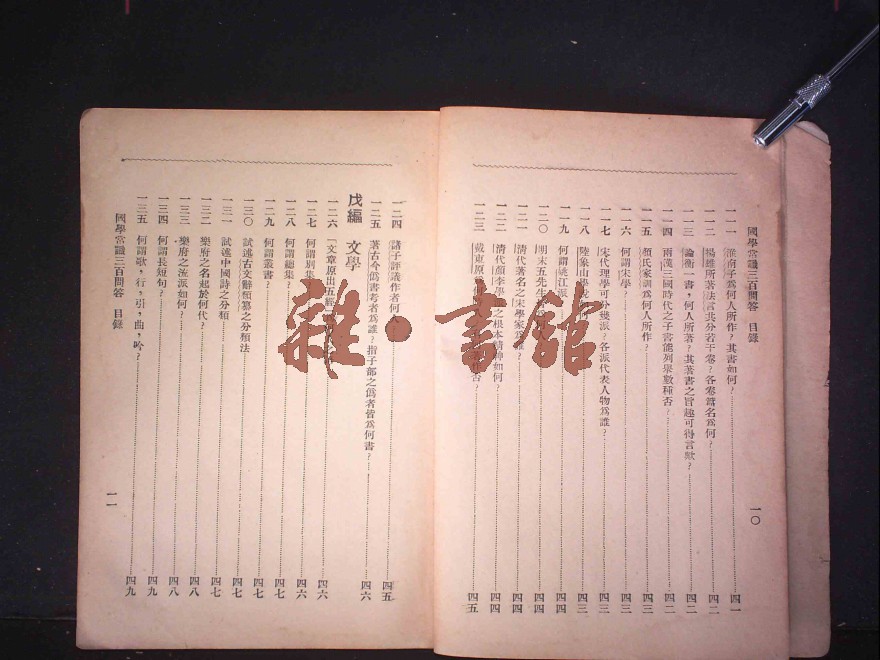 國學常識三百問答　目錄
一〇
一一一　淮南子爲何人所作？其書如何？……四一
一一二　楊雄所著法言共分若干卷？各卷篇名爲何？……四二
一一三　論衡一書，何人所著？其著書之旨趣可得言歟？……四二
一一四　兩漢三國時代之子書能列舉數種否？……四二
一一五　顏氏家訓爲何人所作？……四三
一一六　何謂宋學？……四三
一一七　宋代理學可分幾派？各派代表人物爲誰？……四三
一一八　陸象山學說……四三
一一九　何謂姚江派……四四
一二〇　明末五先生……四四
一二一　清代著名之宋學家爲誰？……四四
一二二　清代顏李學之根本精神如何？……四四
一二三　戴東原……否？……四五
一二四　諸子評議作者何人……四五
一二五　著古今僞書考者爲誰？指子部之僞者皆爲何書？……四六
戊編　文學
一二六　「文章原出五經……四六
一二七　何謂別集……四六
一二八　何謂總集？……四七
一二九　何謂叢書？……四七
一三〇　試述古文辭類纂之分類法……四七
一三一　試述中國詩之分類……四七
一三二　樂府之名起於何代？……四八
一三三　樂府之流派如何？……四八
一三四　何謂長短句？……四九
一三五　何謂歌，行，引，曲，吟？……四九
國學常識三百問答　目錄
一一
雜·書館